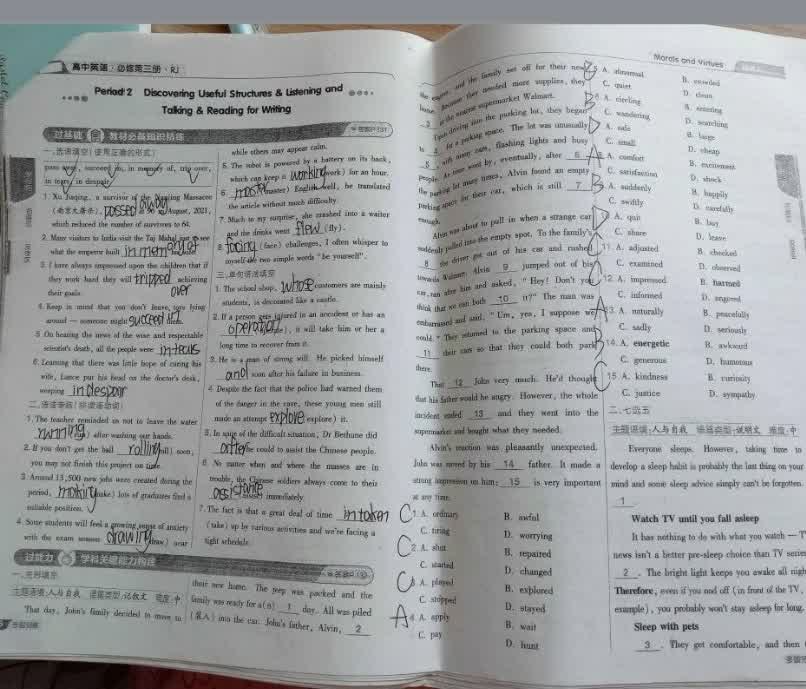 高中英语·必修第三册·RJ
Period 2 Discovering Useful Structures & Listening and
Talking & Reading for Writing
过基础 教材必备知识精练
一、选词填空(使用正确的形式)
pass away, succeed in, in memory of, trip over,
in tears, in despair
1. Xu Jiaqing, a survivor of the Nanjing Massacre
(南京大屠杀), passed away August, 2021,
which reduced the number of survivors to 64.
2. Many visitors to India visit the Taj Mahal see
what the emperor built in memory of
3. I have always impressed upon the children that if
they work hard they will tripped achieving
over
their goals.
4. Keep in mind that you don't leave toys lying
around — someone might succeed in
5. On hearing the news of the wise and respectable
scientist's death, all the people were in tears
6. Learning that there was little hope of curing his
wife, Lance put his head on the doctor's desk,
weeping in despair
1. The teacher reminded us not to leave the water
running) after washing our hands.
2. If you don't get the ball rolling) soon,
you may not finish this project on time.
3. Around 13,500 new jobs were created during the
period, making) lots of graduates find a
suitable position.
4. Some students will feel a growing sense of anxiety
with the exam season drawing(draw) near
while others may appear calm.
5. The robot is powered by a battery on its back,
which can keep it working(work) for an hour.
6. master) English well, he translated
the article without much difficulty.
7. Much to my surprise, she crashed into a waiter
and the drinks went flew (fly).
8. facing (face) challenges, I often whisper to
myself the two simple words “be yourself”.
三、单句语法填空
1. The school shop, whose customers are mainly
students, is decorated like a castle.
2. If a person gets injured in an accident or has an
operation), it will take him or her a
long time to recover from it.
3. He is a man of strong will. He picked himself
and soon after his failure in business.
4. Despite the fact that the police had warned them
of the danger in the cave, these young men still
made an attempt explore(explore) it.
5. In spite of the difficult situation, Dr Bethune did
he could to assist the Chinese people.
6. No matter when and where the masses are in
trouble, the Chinese soldiers always come to their
assistance immediately.
7. The fact is that a great deal of time in taken
(take) up by various activities and we're facing a
tight schedule.
过能力 学科关键能力构建
一、完形填空
主题语境:人与自我 语篇类型:记叙文 难度:中
That day, John's family decided to move to
their new home. The jeep was packed and the
family was ready for a(n) 1 day. All was piled
(塞入) into the car. John's father, Alvin, 2
Morals and Virtues
and the family set off for their new
Because they needed more supplies, they
3 at the nearest supermarket Walmart.
Upon driving into the parking lot, they began
to 4 for a parking space. The lot was unusually
5 with many cars, flashing lights and busy
people. As time went by, eventually, after 6
the parking lot many times, Alvin found an empty
parking space for their car, which is still 7
enough.
Alvin was about to pull in when a strange car
suddenly pulled into the empty spot. To the family's
8 the driver got out of his car and rushed
towards Walmart. Alvin 9 jumped out of his
car, ran after him and asked, “Hey! Don't you
think that we can both 10 it?” The man was
embarrassed and said, “Um, yes, I suppose we
could.” They returned to the parking space and
11 their cars so that they could both park
there.
That 12 John very much. He'd thought
that his father would be angry. However, the whole
incident ended 13 and they went into the
supermarket and bought what they needed.
Alvin's reaction was pleasantly unexpected.
John was moved by his 14 father. It made a
strong impression on him: 15 is very important
at any time.
C 1. A. ordinary B. awful
C. tiring D. worrying
C 2. A. shut B. repaired
C. started D. changed
C 3. A. played B. explored
C. stopped D. stayed
A 4. A. apply B. wait
C. pay D. hunt
A. abnormal B. crowded
C. quiet D. clean
A. circling B. entering
C. wandering D. searching
A. safe B. large
C. small D. cheap
A. comfort B. excitement
C. satisfaction D. shock
A. suddenly B. happily
C. swiftly D. carefully
A. quit B. buy
C. share D. leave
11. A. adjusted B. checked
C. examined D. observed
12. A. impressed B. harmed
C. informed D. angered
13. A. naturally B. peacefully
C. sadly D. seriously
14. A. energetic B. awkward
C. generous D. humorous
15. A. kindness B. curiosity
C. justice D. sympathy
二、七选五
主题语境:人与自我 语篇类型:说明文 难度:中
Everyone sleeps. However, taking time to
develop a sleep habit is probably the last thing on your
mind and some sleep advice simply can't be forgotten.
1
Watch TV until you fall asleep
It has nothing to do with what you watch — T
news isn't a better pre-sleep choice than TV series
2 . The bright light keeps you awake all nigh
Therefore, even if you nod off (in front of the TV,
example), you probably won't stay asleep for long.
Sleep with pets
3 . They get comfortable, and then